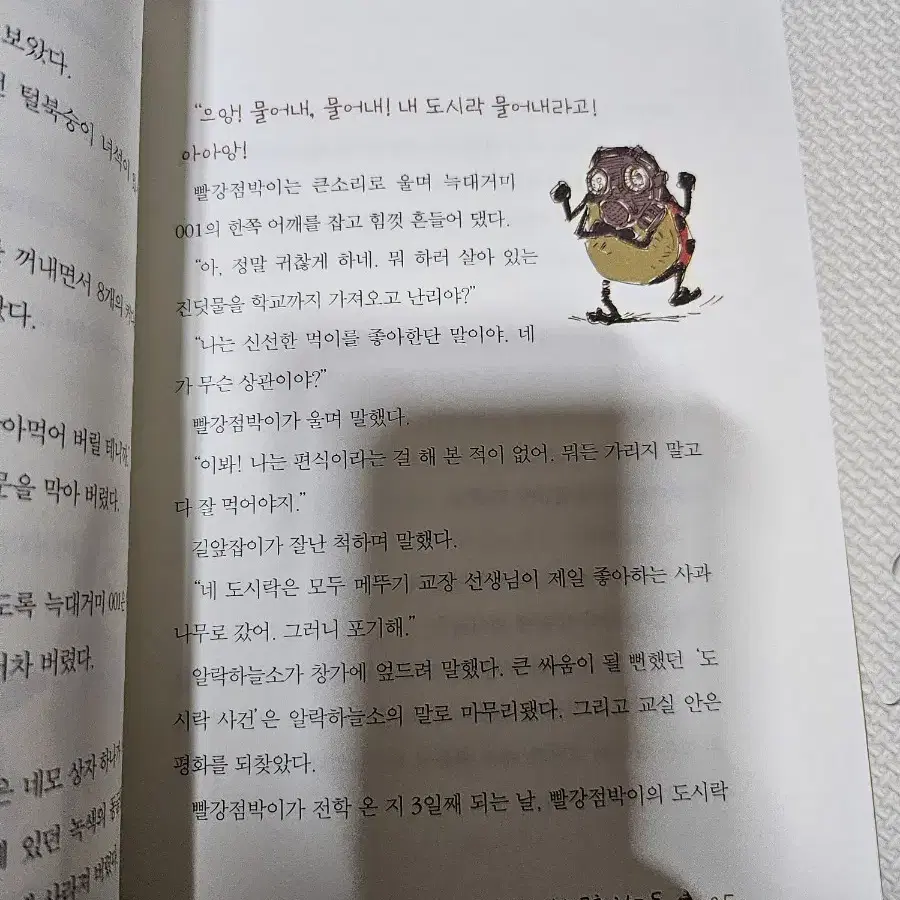 보았다.
털북숭이 녀석이
꺼내면서 8개의
았다.
아먹어 버릴 테니까
문을 막아 버렸다.
도록 늑대거미 001은
버렸다.
은 네모 상자 하나가
있던 녹색의
사라져 버렸다
"으앙! 물어내, 물어내! 내 도시락 물어내라고!
아아앙!
빨강점박이는 큰소리로 울며 늑대거미
001의 한쪽 어깨를 잡고 힘껏 흔들어 댔다.
"아, 정말 귀찮게 하네. 뭐 하러 살아 있는
진딧물을 학교까지 가져오고 난리야?"
"나는 신선한 먹이를 좋아한단 말이야. 네
가 무슨 상관이야?"
빨강점박이가 울며 말했다.
"이봐! 나는 편식이라는 걸 해 본 적이 없어. 뭐든 가리지 말고
다 잘 먹어야지."
길앞잡이가 잘난 척하며 말했다.
"네 도시락은 모두 메뚜기 교장 선생님이 제일 좋아하는 사과
나무로 갔어. 그러니 포기해."
알락하늘소가 창가에 엎드려 말했다. 큰 싸움이 될 뻔했던 '도
시락 사건'은 알락하늘소의 말로 마무리됐다. 그리고 교실 안은
평화를 되찾았다.
빨강점박이가 전학 온 지 3일째 되는 날, 빨강점박이의 도시락